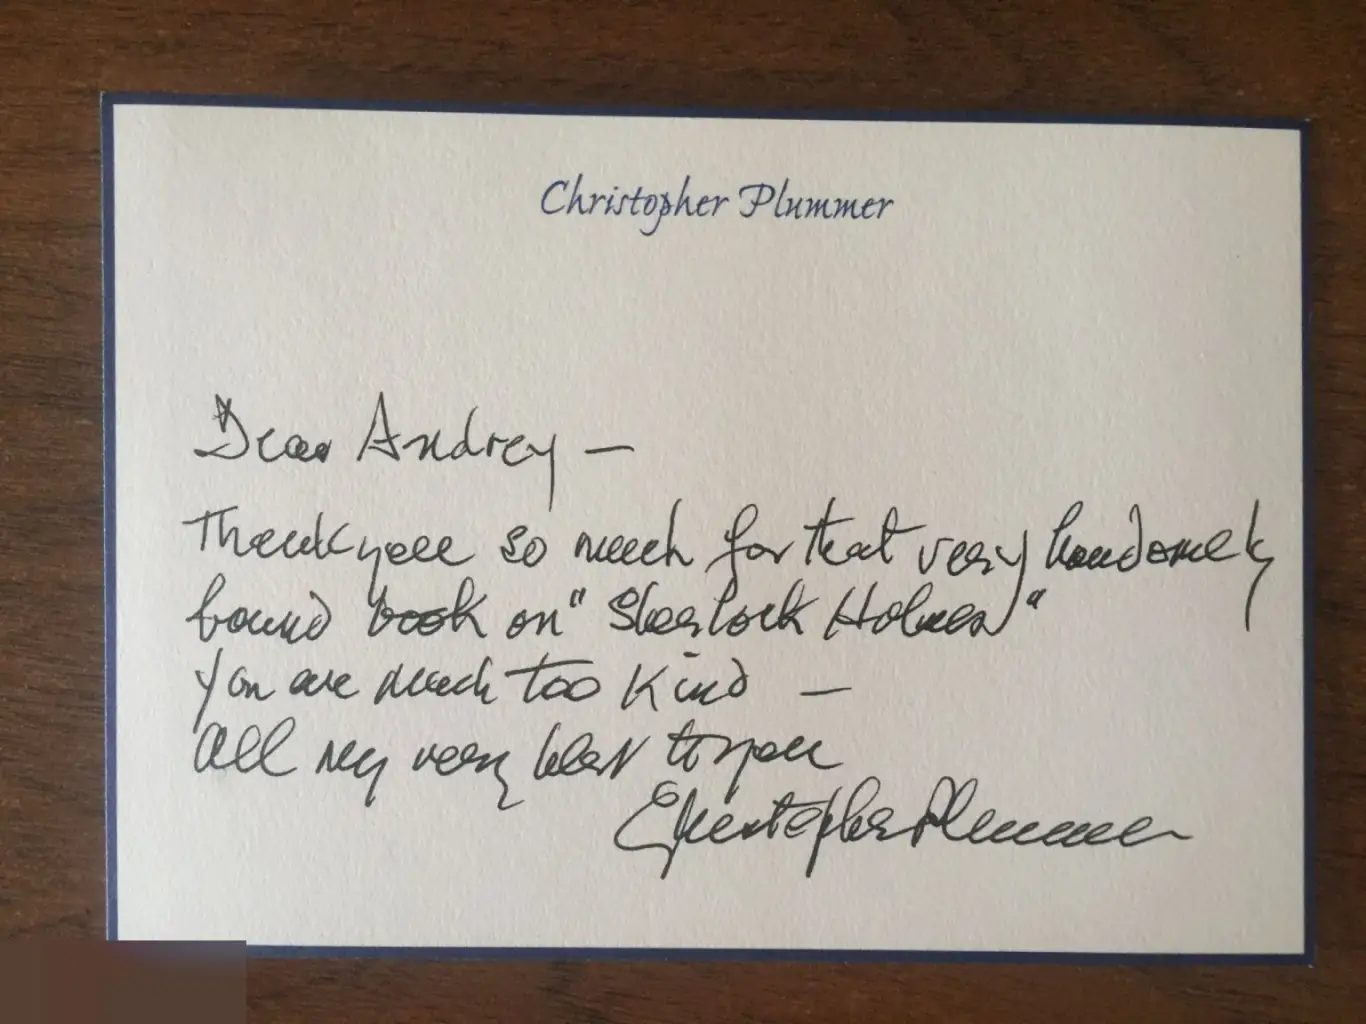 Christopher Plummer
Dear Andrey —
Thank you so much for that very handsomely
bound book on "Sherlock Holmes"
You are much too kind —
All my very best to you
Christopher Plummer